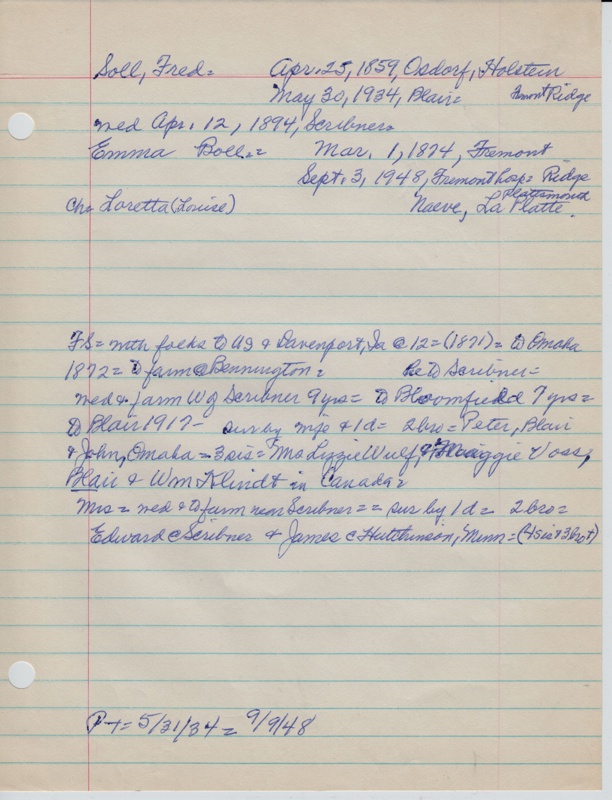 Soll, Fred= Apr. 25, 1859, Osdorf, Holstein
May 30, 1934, Blair= Fremont Ridge
wed Apr. 12, 1894, Scribner=
Emma Boll== Mar. 1, 1874, Fremont
Sept. 3, 1948, Fremont hosp= Ridge
Ch= Loretta (Louise) Naeve, La Platte. Plattsmouth
FS= with folks to US & Davenport, Ia @ 12= (1871)= to Omaha
1872= to farm @ Bennington= to Scribner=
wed & farm W of Scribner 9 yrs= to Bloomfield 7 yrs=
to Blair 1917- sur by wife & 1d= 2 bro= Peter, Blair
& John, Omaha - 3 sis= Mrs Lizzie Wulf, & Maggie Voss,
Blair & Wm Klindt in Canada=
Mrs = wed & to farm near Scribner== sur by 1d= 2 bro=
Edward c Scribner & James c Hutchinson, Minn= (4 sis & 3 bro +)
P-t= 5/31/34= 9/9/48